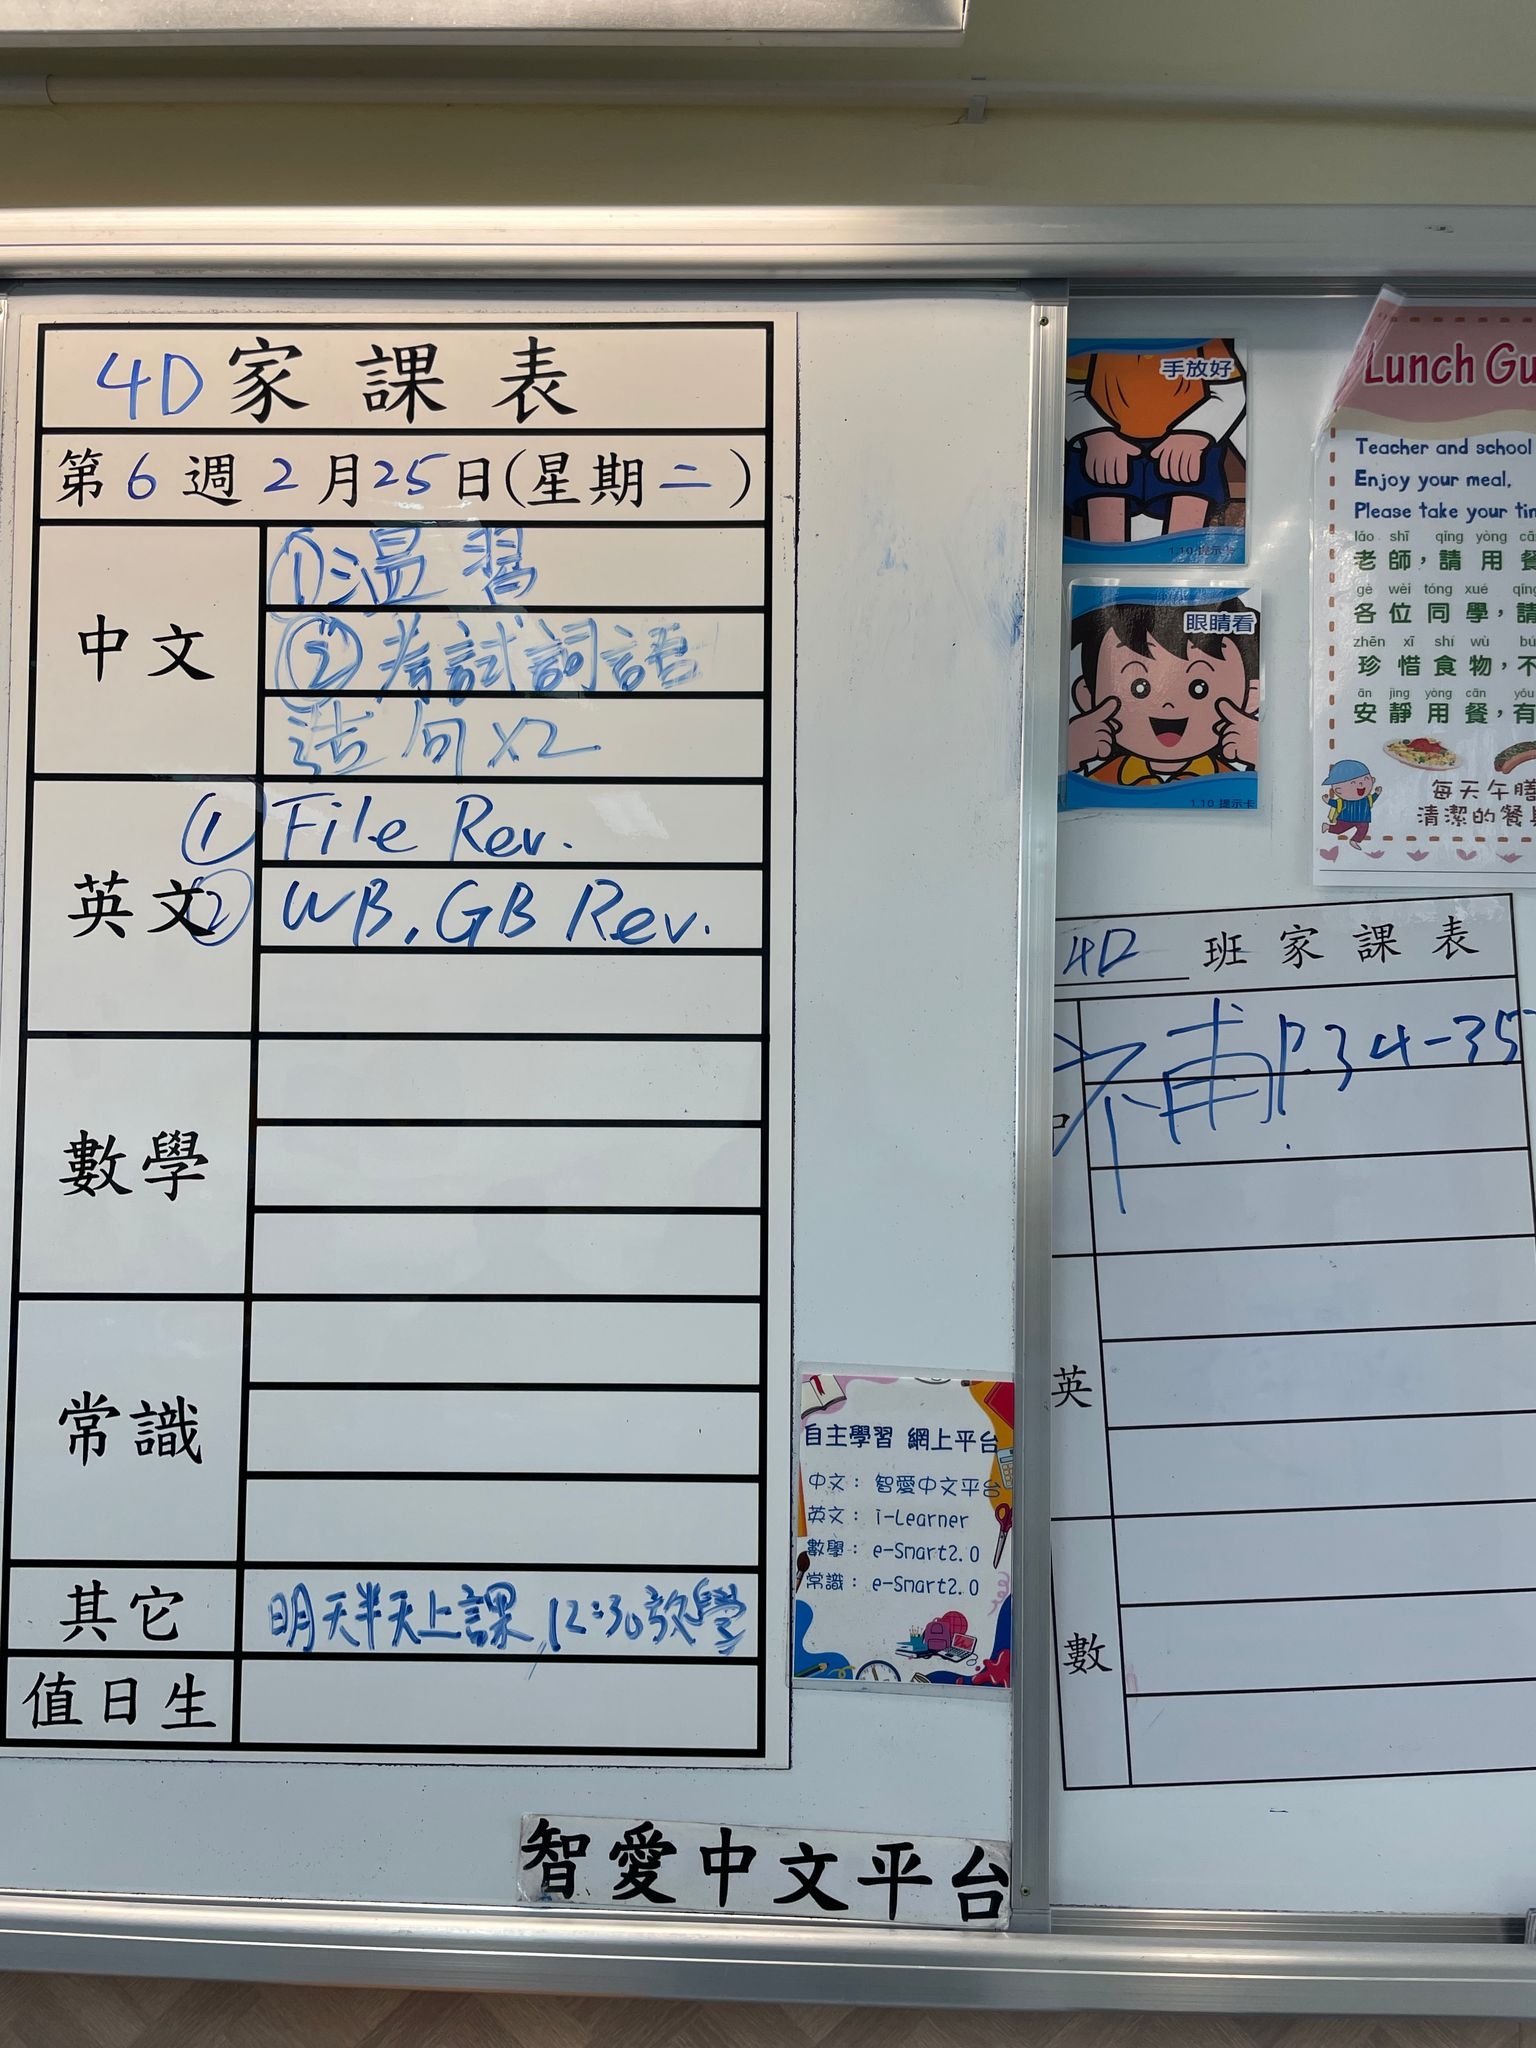 4D家課表
第6週2月25日(星期二)
中文
①溫習
②考試詞語
造句x2
英文
① File Rev.
② WB, GB Rev.
數學
常識
其它
明天半天上課，12:30放學
值日生
智愛中文平台
自主學習 網上平台
中文： 智愛中文平台
英文： i-Learner
數學： e-Smart2.0
常識： e-Smart2.0
手放好
1.10 提示卡
眼睛看
1.10 提示卡
Lunch Gu
Teacher and school
Enjoy your meal,
Please take your tim
lǎo shī qǐng yòng cā
老師，請用餐
gè wèi tóng xué qǐng
各位同學，請
zhēn xī shí wù bú
珍惜食物，不
ān jìng yòng cān yǒu
安靜用餐，有
每天午膳
清潔的餐具
4D 班家課表
補P.34-35
英
數